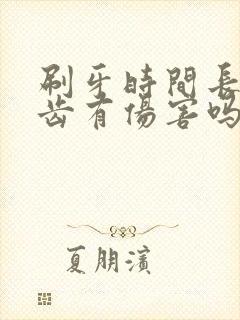 刷牙時間長
齿有傷害吗
夏朋濱